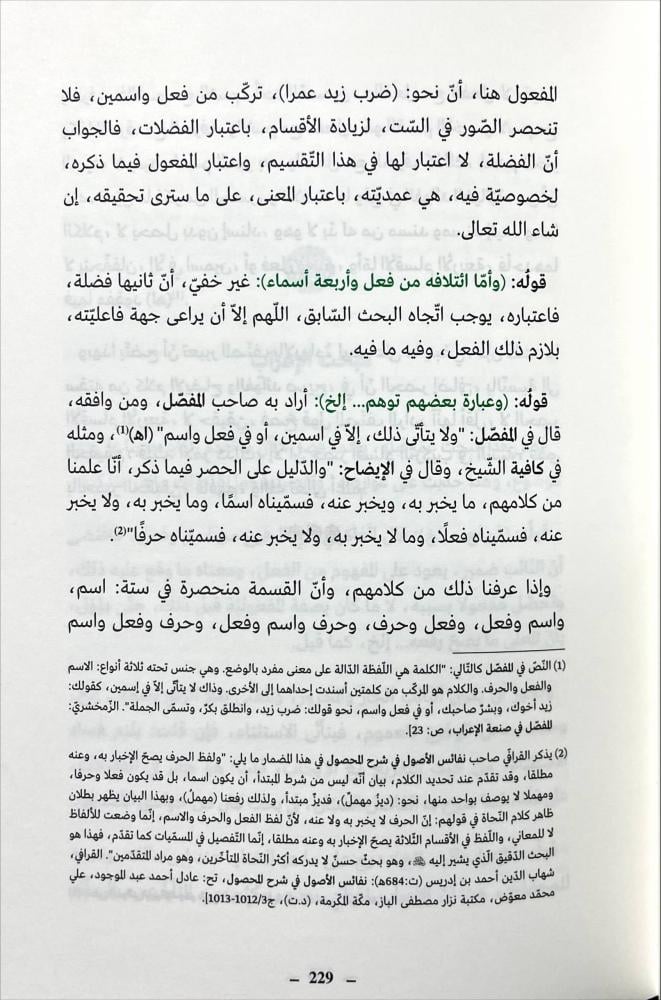 المفعول هنا، أنّ نحو: (ضرب زيد عمرا)، تركّب من فعل واسمين، فلا
تنحصر الصّور في السّت، لزيادة الأقسام، باعتبار الفضلات، فالجواب
أنّ الفضلة، لا اعتبار لها في هذا التّقسيم، واعتبار المفعول فيما ذكره،
لخصوصيّة فيه، هي عمديّته، باعتبار المعنى، على ما سترى تحقيقه، إن
شاء الله تعالى.
قولُه: (وأمّا ائتلافه من فعل وأربعة أسماء): غير خفيّ، أنّ ثانيها فضلة،
فاعتباره، يوجب اتّجاه البحث السّابق، اللّهم إلاّ أن يراعى جهة فاعليّته،
بلازم ذلك الفعل، وفيه ما فيه.
قولُه: (وعبارة بعضهم توهم... إلخ): أراد به صاحب المفصّل، ومن وافقه،
قال في المفصّل: "ولا يتأتّى ذلك، إلاّ في اسمين، أو في فعل واسم" (اهـ)(1)، ومثله
في كافية الشّيخ، وقال في الإيضاح: "والدّليل على الحصر فيما ذكر، أنّا علمنا
من كلامهم، ما يخبر به، ويخبر عنه، فسمّيناه اسمًا، وما يخبر به، ولا يخبر
عنه، فسمّيناه فعلًا، وما لا يخبر به، ولا يخبر عنه، فسميّناه حرفًا"(2).
وإذا عرفنا ذلك من كلامهم، وأنّ القسمة منحصرة في ستة: اسم،
واسم وفعل، وفعل وحرف، وحرف واسم وفعل، وحرف وفعل واسم
(1) النّص في المفصّل كالتّالي: "الكلمة هي اللّفظة الدّالة على معنى مفرد بالوضع. وهي جنس تحته ثلاثة أنواع: الاسم
والفعل والحرف. والكلام هو المركّب من كلمتين أسندت إحداهما إلى الأخرى. وذاك لا يتأتّى إلاّ في إسمين، كقولك:
زيد أخوك، وبشرٌ صاحبك، أو في فعل واسم، نحو قولك: ضرب زيد، وانطلق بكرٌ، وتسمّى الجملة". الزّمخشريّ:
المفصّل في صنعة الإعراب، ص: 23].
(2) يذكر القرافيّ صاحب نفائس الأصول في شرح المحصول في هذا المضمار ما يلي: "ولفظ الحرف يصحّ الإخبار به، وعنه
مطلقا، وقد تقدّم عند تحديد الكلام، بيان أنّه ليس من شرط المبتدأ، أن يكون اسما، بل قد يكون فعلا وحرفا،
ومهملا لا يوصف بواحد منها، نحو: (ديزٌ مهملٌ)، فديزٌ مبتدأ، ولذلك رفعنا (مهملٌ)، وبهذا البيان يظهر بطلان
ظاهر كلام النّحاة في قولهم: إنّ الحرف لا يخبر به ولا عنه، لأنّ لفظ الفعل والحرف والاسم، إنّما وضعت للألفاظ
لا للمعاني، واللّفظ في الأقسام الثّلاثة يصحّ الإخبار به وعنه مطلقا، إنّما التّفصيل في المسمّيات كما تقدّم، فهذا هو
البحث الدّقيق الّذي يشير إليه ﷺ، وهو بحثٌ حسنٌ لا يدركه أكثر النّحاة المتأخّرين، وهو مراد المتقدّمين". القرافي،
شهاب الدّين أحمد بن إدريس (ت:684هـ): نفائس الأصول في شرح المحصول، تح: عادل أحمد عبد الموجود، علي
محمّد معوّض، مكتبة نزار مصطفى الباز، مكّة المكّرمة، (د.ت)، ج3/1012-1013].
– 229 –